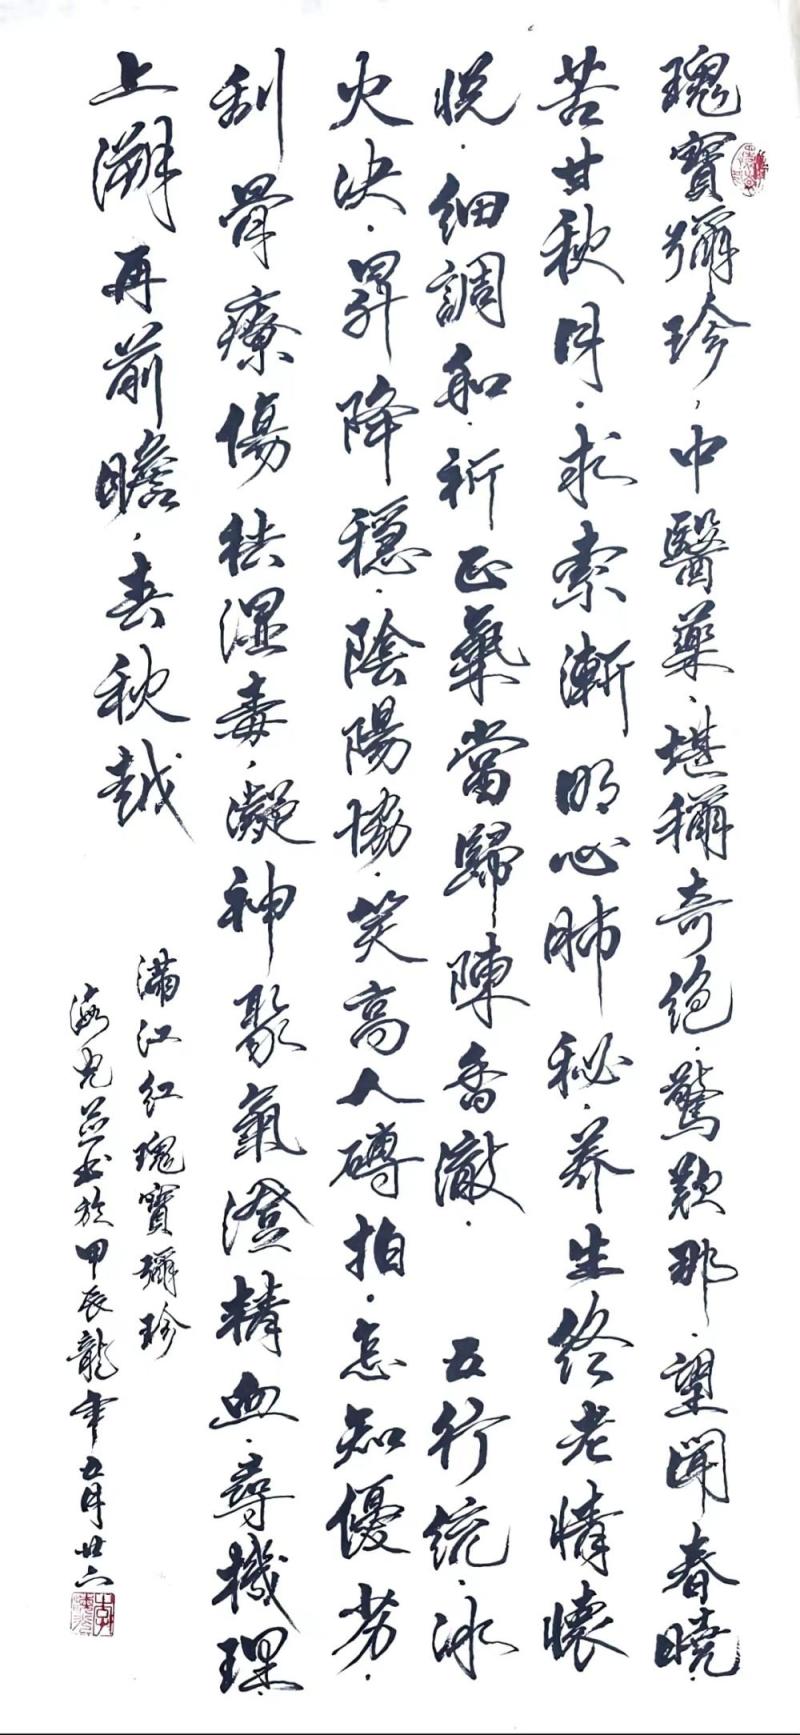 瑰寶彌珍，中醫藥、堪稱奇絶。驚歎那、望聞春曉，
苦甘秋月。求索漸明心肺秘，養生終老情懷
悅。細調和、祈正氣當歸，陳香澈。 五行統，冰
火决。昇降穩，陰陽協。笑高人磚拍，怎知優劣。
刮骨療傷祛濕毒，凝神聚氣澄精血。尋機理、
上溯再前瞻，春秋越
滿江紅 瑰寶彌珍
海光并书於甲辰龍年五月廿六